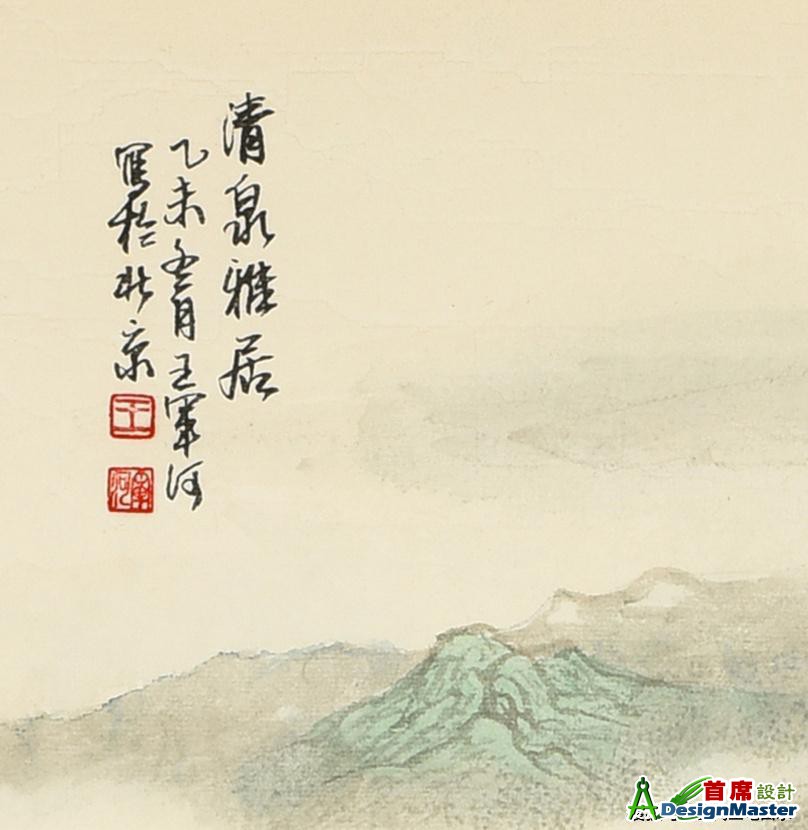 清泉雅居
乙未冬月王軍河
寫於北京
王
軍河
首席設計
ADesignMaster